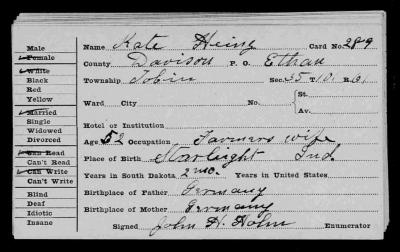 Male
Female
White
Black
Red
Yellow
Married
Single
Widowed
Divorced
Can Read
Can't Read
Can Write
Can't Write
Blind
Deaf
Idiotic
Insane
Name Kate Heing Card No. 289
County Davison P. O. Ethan
Township Tobin Sec. 35 T. 101 R. 61
Ward City No. St. Av.
Hotel or Institution
Age 52 Occupation Farmers wife
Place of Birth Starlight Ind
Years in South Dakota 2 mo. Years in United States
Birthplace of Father Germany
Birthplace of Mother Germany
Signed John H. Holm Enumerator